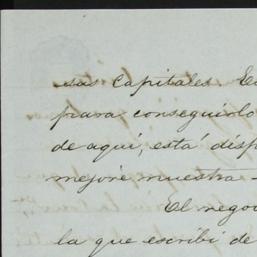 sus capitales. E
para conseguirlo
de aquí, está disp
mejore muestra -
El nego
la que escribí de